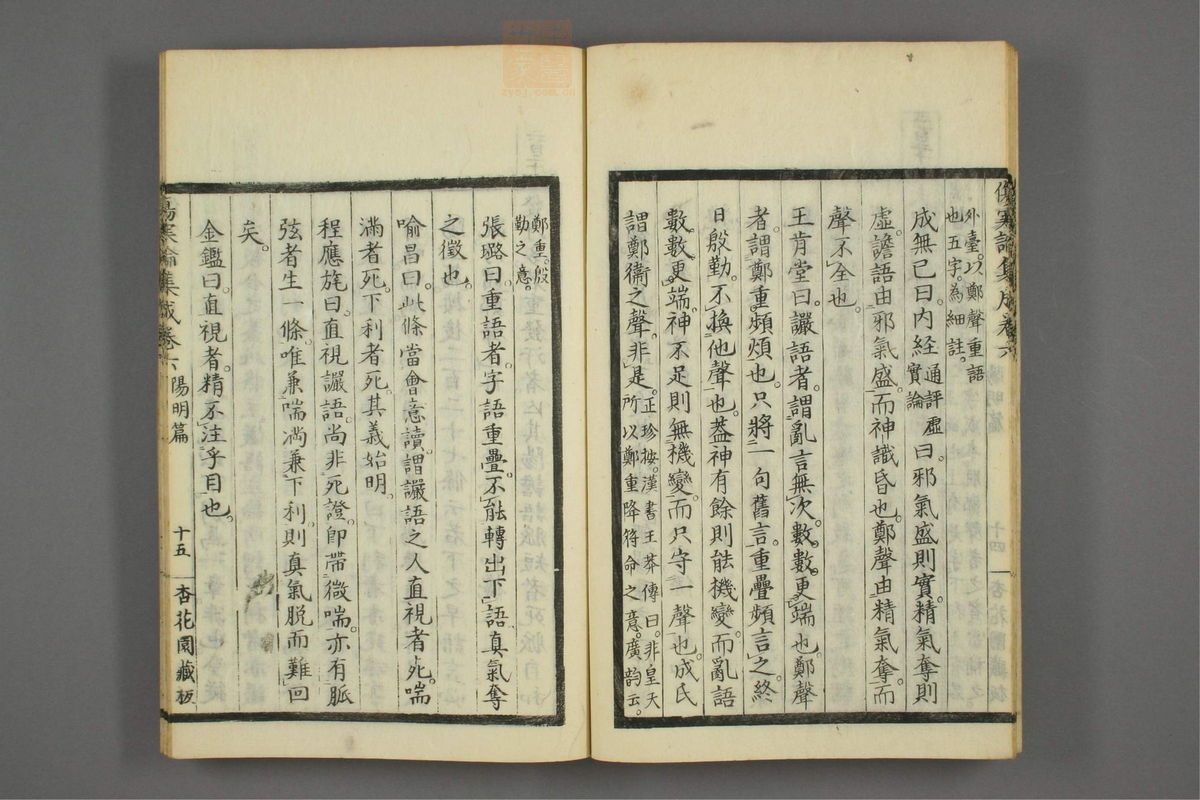 傷寒論集成卷六
外臺。以鄭聲重語
也五字。為細註。
成無己曰。內經通評虛實論曰。邪氣盛則實。精氣奪則
虛。譫語由邪氣盛。而神識昏也。鄭聲由精氣奪。而
聲不全也。
王肯堂曰。讝語者。謂亂言無次。數數更端也。鄭聲
者。謂鄭重頻煩也。只將一句舊言。重疊頻言之。終
日殷勤。不換他聲也。蓋神有餘則能機變。而亂語
數數更端。神不足則無機變。而只守一聲也。成氏
謂鄭衞之聲。非是。正珍按。漢書王莽傳曰。非皇天
所以鄭重降符命之意。廣韵云。
鄭重。殷
勤之意。
張璐曰。重語者。字語重疊。不能轉出下語。真氣奪
之徵也。
喻昌曰。此條當會意讀。謂讝語之人直視者死。喘
滿者死。下利者死。其義始明。
程應旄曰。直視讝語。尚非死證。卽帶微喘。亦有脈
弦者生一條。唯兼喘滿兼下利。則真氣脫而難回
矣。
金鑑曰。直視者。精不注乎目也。
傷寒論集成卷六 陽明篇 十五 杏花園藏板